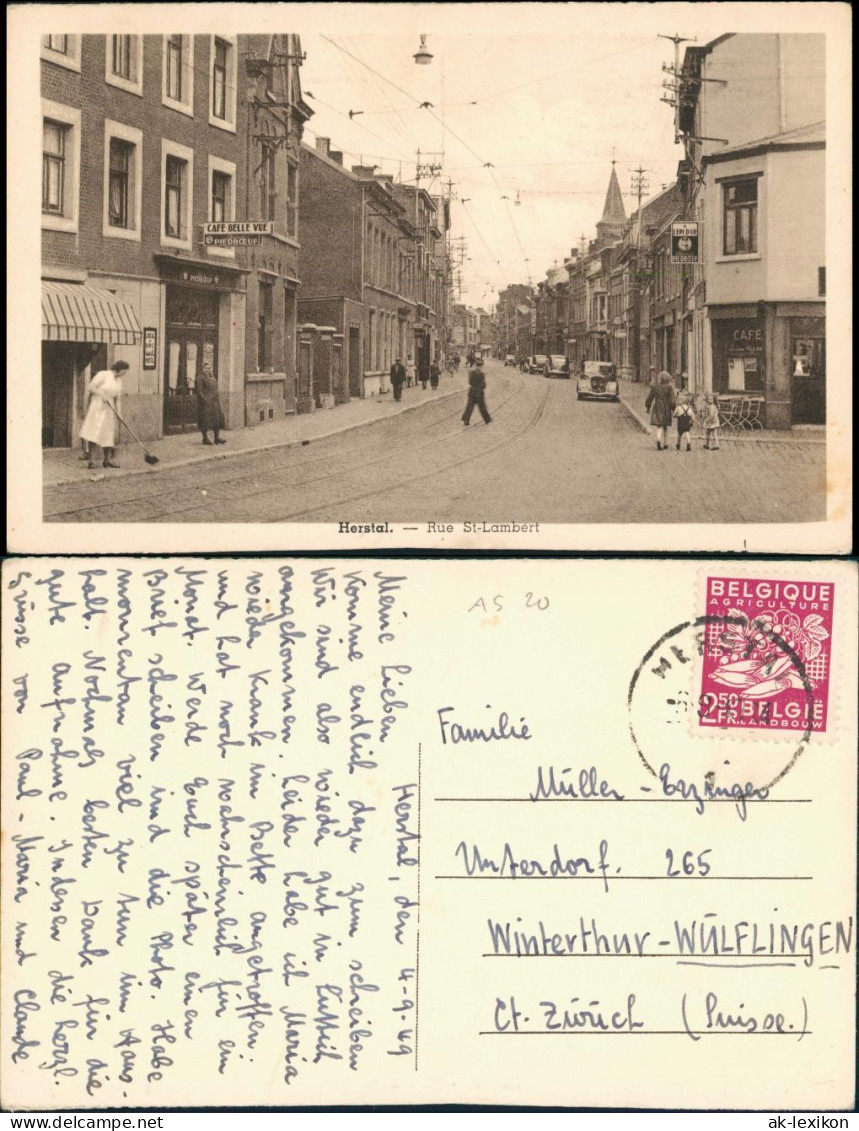 CAFE BELLE VUE
PIEDBŒUF
PIEDBŒUF
CAFÉ
Herstal. — Rue St-Lambert
AS 20
BELGIQUE
AGRICULTURE
2,50
FR.
BELGIE
LANDBOUW
HERSTAL
Herstal, den 4-9-49
Meine lieben
Komme endlich dazu zum schreiben
Wir sind also wieder gut in Lüttich
angekommen. Leider habe ich Maria
wieder krank im Bette angetroffen.
und hat noch wahrscheinlich für ein
Monat. Werde Euch später einen
Brief schreiben und die Photo. Habe
momentan viel zu tun im Haus-
halt. Nochmals besten Dank für die
gute aufnahme. Indessen die herzl.
Grüsse von Paul - Maria und Claude
Familie
Müller - Erzinger
Unterdorf. 265
Winterthur - WÜLFLINGEN
Ct. Zürich (Suisse.)
© ak-lexikon https://www.delcampe.net
ak-lexikon